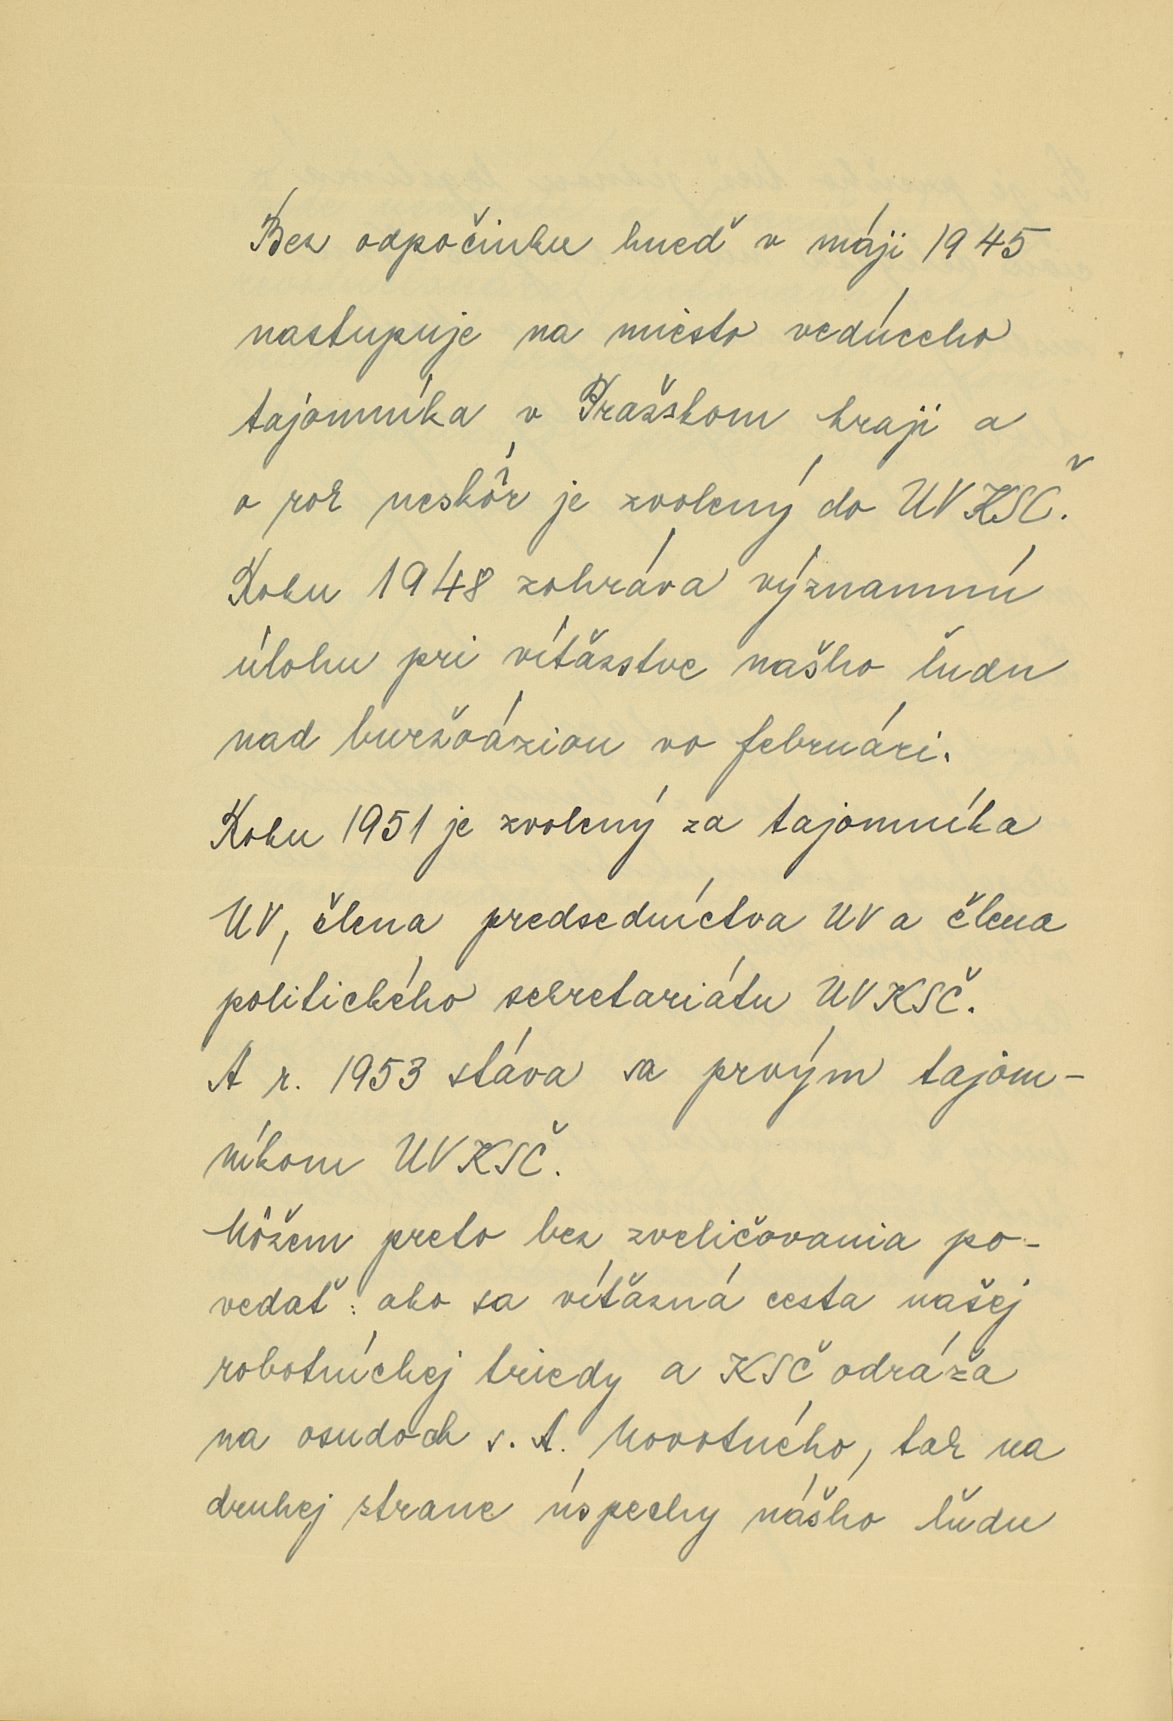 Bez odpočinku hneď v máji 1945
nastupuje na miesto vedúceho
tajomníka v Pražskom kraji a
o rok neskôr je zvolený do UV KSČ.
Roku 1948 zohráva významnú
úlohu pri víťazstve našho ľudu
nad buržoáziou vo februári.
Roku 1951 je zvolený za tajomníka
UV, člena predsedníctva UV a člena
politického sekretariátu UV KSČ.
A r. 1953 stáva sa prvým tajom-
níkom UV KSČ.
Môžem preto bez zveličovania po-
vedať: ako sa víťazná cesta našej
robotníckej triedy a KSČ odráža
na osudoch s. A. Novotného, tak na
druhej strane úspechy nášho ľudu